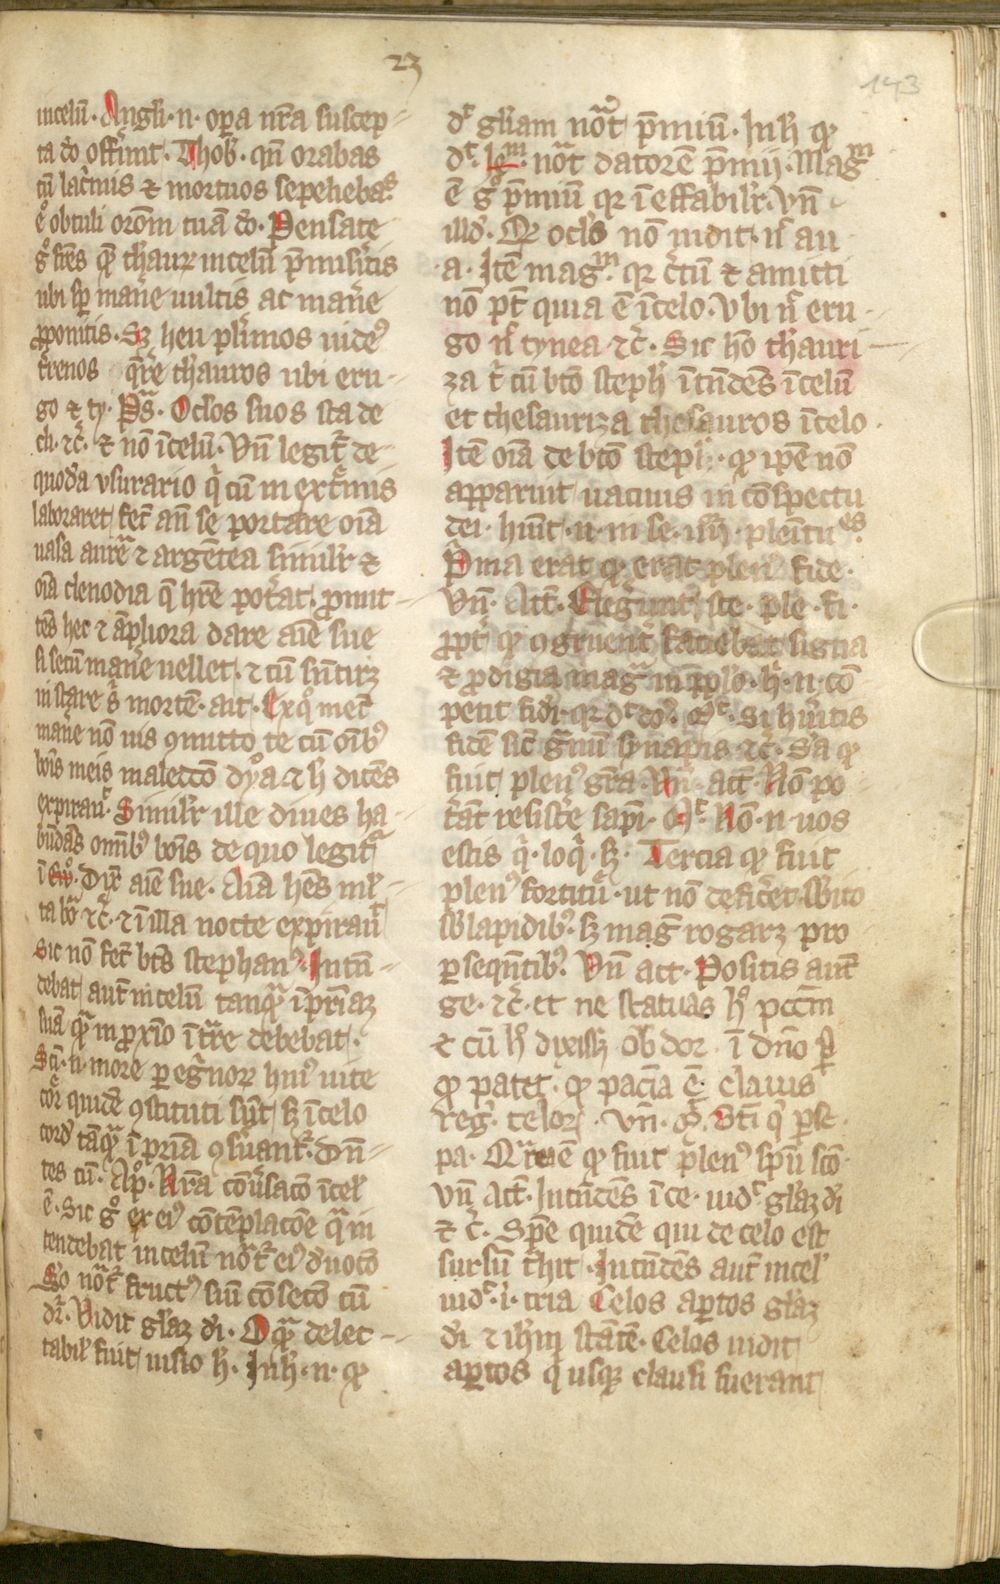 23
143
incelū. Angli. n. oꝑa nr̄a suscep-
ta do offerūt. Thob. qn̄ orabas
cū lacrīmis ⁊ mortuos sepeliebas.
obtuli orōm tuā do. Pensate
gͦ frēs qͥ thauꝝ incelū p̄misistis
ubi sꝑ man̄e uultis ac man̄e
ꝓponitis. Sꝫ heu plīmos uideꝰ
t̄renos qr̄re thauros ubi eru-
go ⁊ ty. Ps̄. Oclos suos sta de
cli. ⁊c̄. ⁊ nō īcelū. Vn̄ legit̄ de
quodā vsurario qͥ cū in ext̄mis
laboraret fec̄ an̄ se portare oīa
uasa aurea ⁊ argētea simil̄r ⁊
oīa clenodia q̄ hr̄e pot̄at, ꝓmit-
tēs hec ⁊ āpliora dare aīe sue
si secū man̄e uellet. ⁊ cū sn̄tirꝫ
īstare s̄ mortē. ait. Exqͦ mec̄
man̄e nō uis ꝯmitto te cū oībꝰ
boīs meis maledcō dyᵃ ⁊ h̄ dicēs
expirauͭ. Simil̄r ille diues ha-
būdās omībꝰ boīs de quo legit̄
dix̄ aīe sue. Aīa hēs ml̄-
ta bo ⁊c̄. ⁊ ī illa nocte expirauͭ
Sic nō fec̄ bt̄s stephanꝰ. Intū-
debat aut̄ incelū tanqᵃ ī pr̄iaꝫ
suā qᵃ in ꝓxīo īt̄re debebat.
Sci. n. more ꝑegͥnoꝝ huiꝰ uite
quidē ꝯstituti sūt sꝫ īcelo
tāqᵃ ī pr̄iā ꝯsuant̄. Dn̄-
tes cū. Ap̄. Nr̄a cōuersacō īcel̄
ē. Sic gͦ ex eiꝰ cōtēplacōe qᵃ in
tendebat incelū not̄ eiꝰ duocō
not̄ fructꝰ suū cōsecō cū
dr̄. Vidit gl̄aꝫ di. O qᵃ delec-
tabil̄ fuit uisio h̄. Inh̄. n. ꝙ
dͭ gl̄iam nōt p̄miū. Inh̄ ꝙ
dͭ. nōt datorē p̄mij. Magᵐ
ē gͦ p̄miū qꝛ īeffabil̄r. Vn̄
illd̄. Qꝛ oclꝰ nō uidit. n̄ au
a. Itē magᵐ. qꝛ c̄tū ⁊ amitti
nō pt̄ quia ē īcelo. Vbi n̄ eru-
go n̄ tynea ⁊c̄. Sic hō thauri-
za t̄ cū bt̄o steph̄ ītūdēs īcelū
et thesauriza thesauros īcelo.
Itē oīa de bt̄o steph̄. ꝙ ip̄e nō
apparuit uacuus in cōspectu
dei. huit. n. in se. iiij. plenituᵉˢ.
Pͥma erat ꝙ erat plenꝰ fide.
Vn̄. Act̄. Elegerunt ste. ple. fi.
ꝓpt̄ ꝙ ꝯgruent̄ faciebat signa
⁊ ꝓdigia magᵃ in pplo. h̄. n. cō-
petit fidi. qꝛ dͭ Si hūitis
fidē sic̄ gͣnū synapis ⁊c̄. Scᵃ ꝙ
fuit plenꝰ gr̄a. Vn̄ act̄. Nō po
t̄āt resistere sapi. Nō. n. uos
estis qͥ. loqͥ. sꝫ. Tercia ꝙ fuit
plenꝰ fortitū. ut nō deficēt. subito
sub lapidibꝰ. sꝫ magᵉ rogarꝫ pro
ꝑseqn̄tibꝰ. Vn̄ act̄. Positis aut̄
ge. ⁊c̄. et ne statuas hͦ pccm̄
⁊ cū hͦ dixissꝫ obdor. ī dn̄o ꝑ
ꝙ patet. ꝙ paciā ē clauis
regͥ. celoꝝ. Vn̄. Bt̄i qͥ ꝑse.
pa. Qͣrta ē ꝙ fuit plenꝰ spū scō.
Vn̄ Act̄. Intūdēs ī ce. uidͭ gl̄aꝫ di
⁊c̄. Sp̄e quidē qui de celo est
sursū t̄hit. Intūdēs aut̄ incel̄
uidͭ. ī. tria Celos aꝑtos gl̄aꝫ
di ⁊ ih̄m stātē. Celos uidit
aꝑtos q̄ usqꝫ clausi fuerant